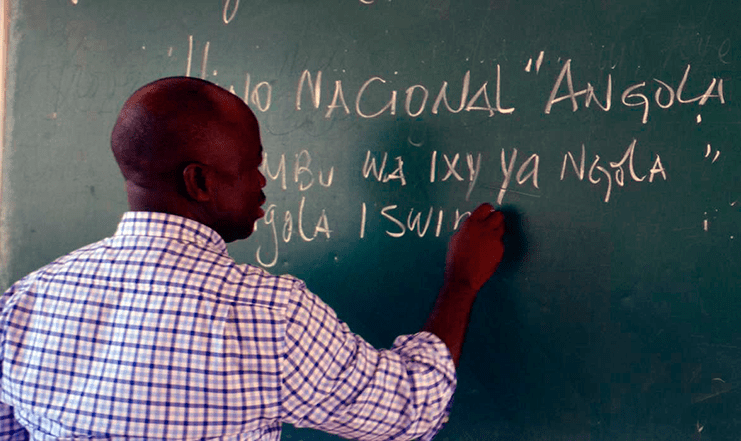 Hino NACIONAL "ANgOLA
MBU WA IXY YA Ngola "
gola ISWIN